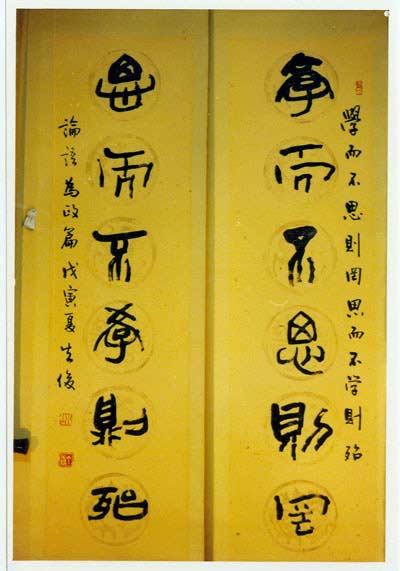 學而不思則罔思而不学則殆
學而不思則罔
思而不學則殆
論語為政篇戊寅夏